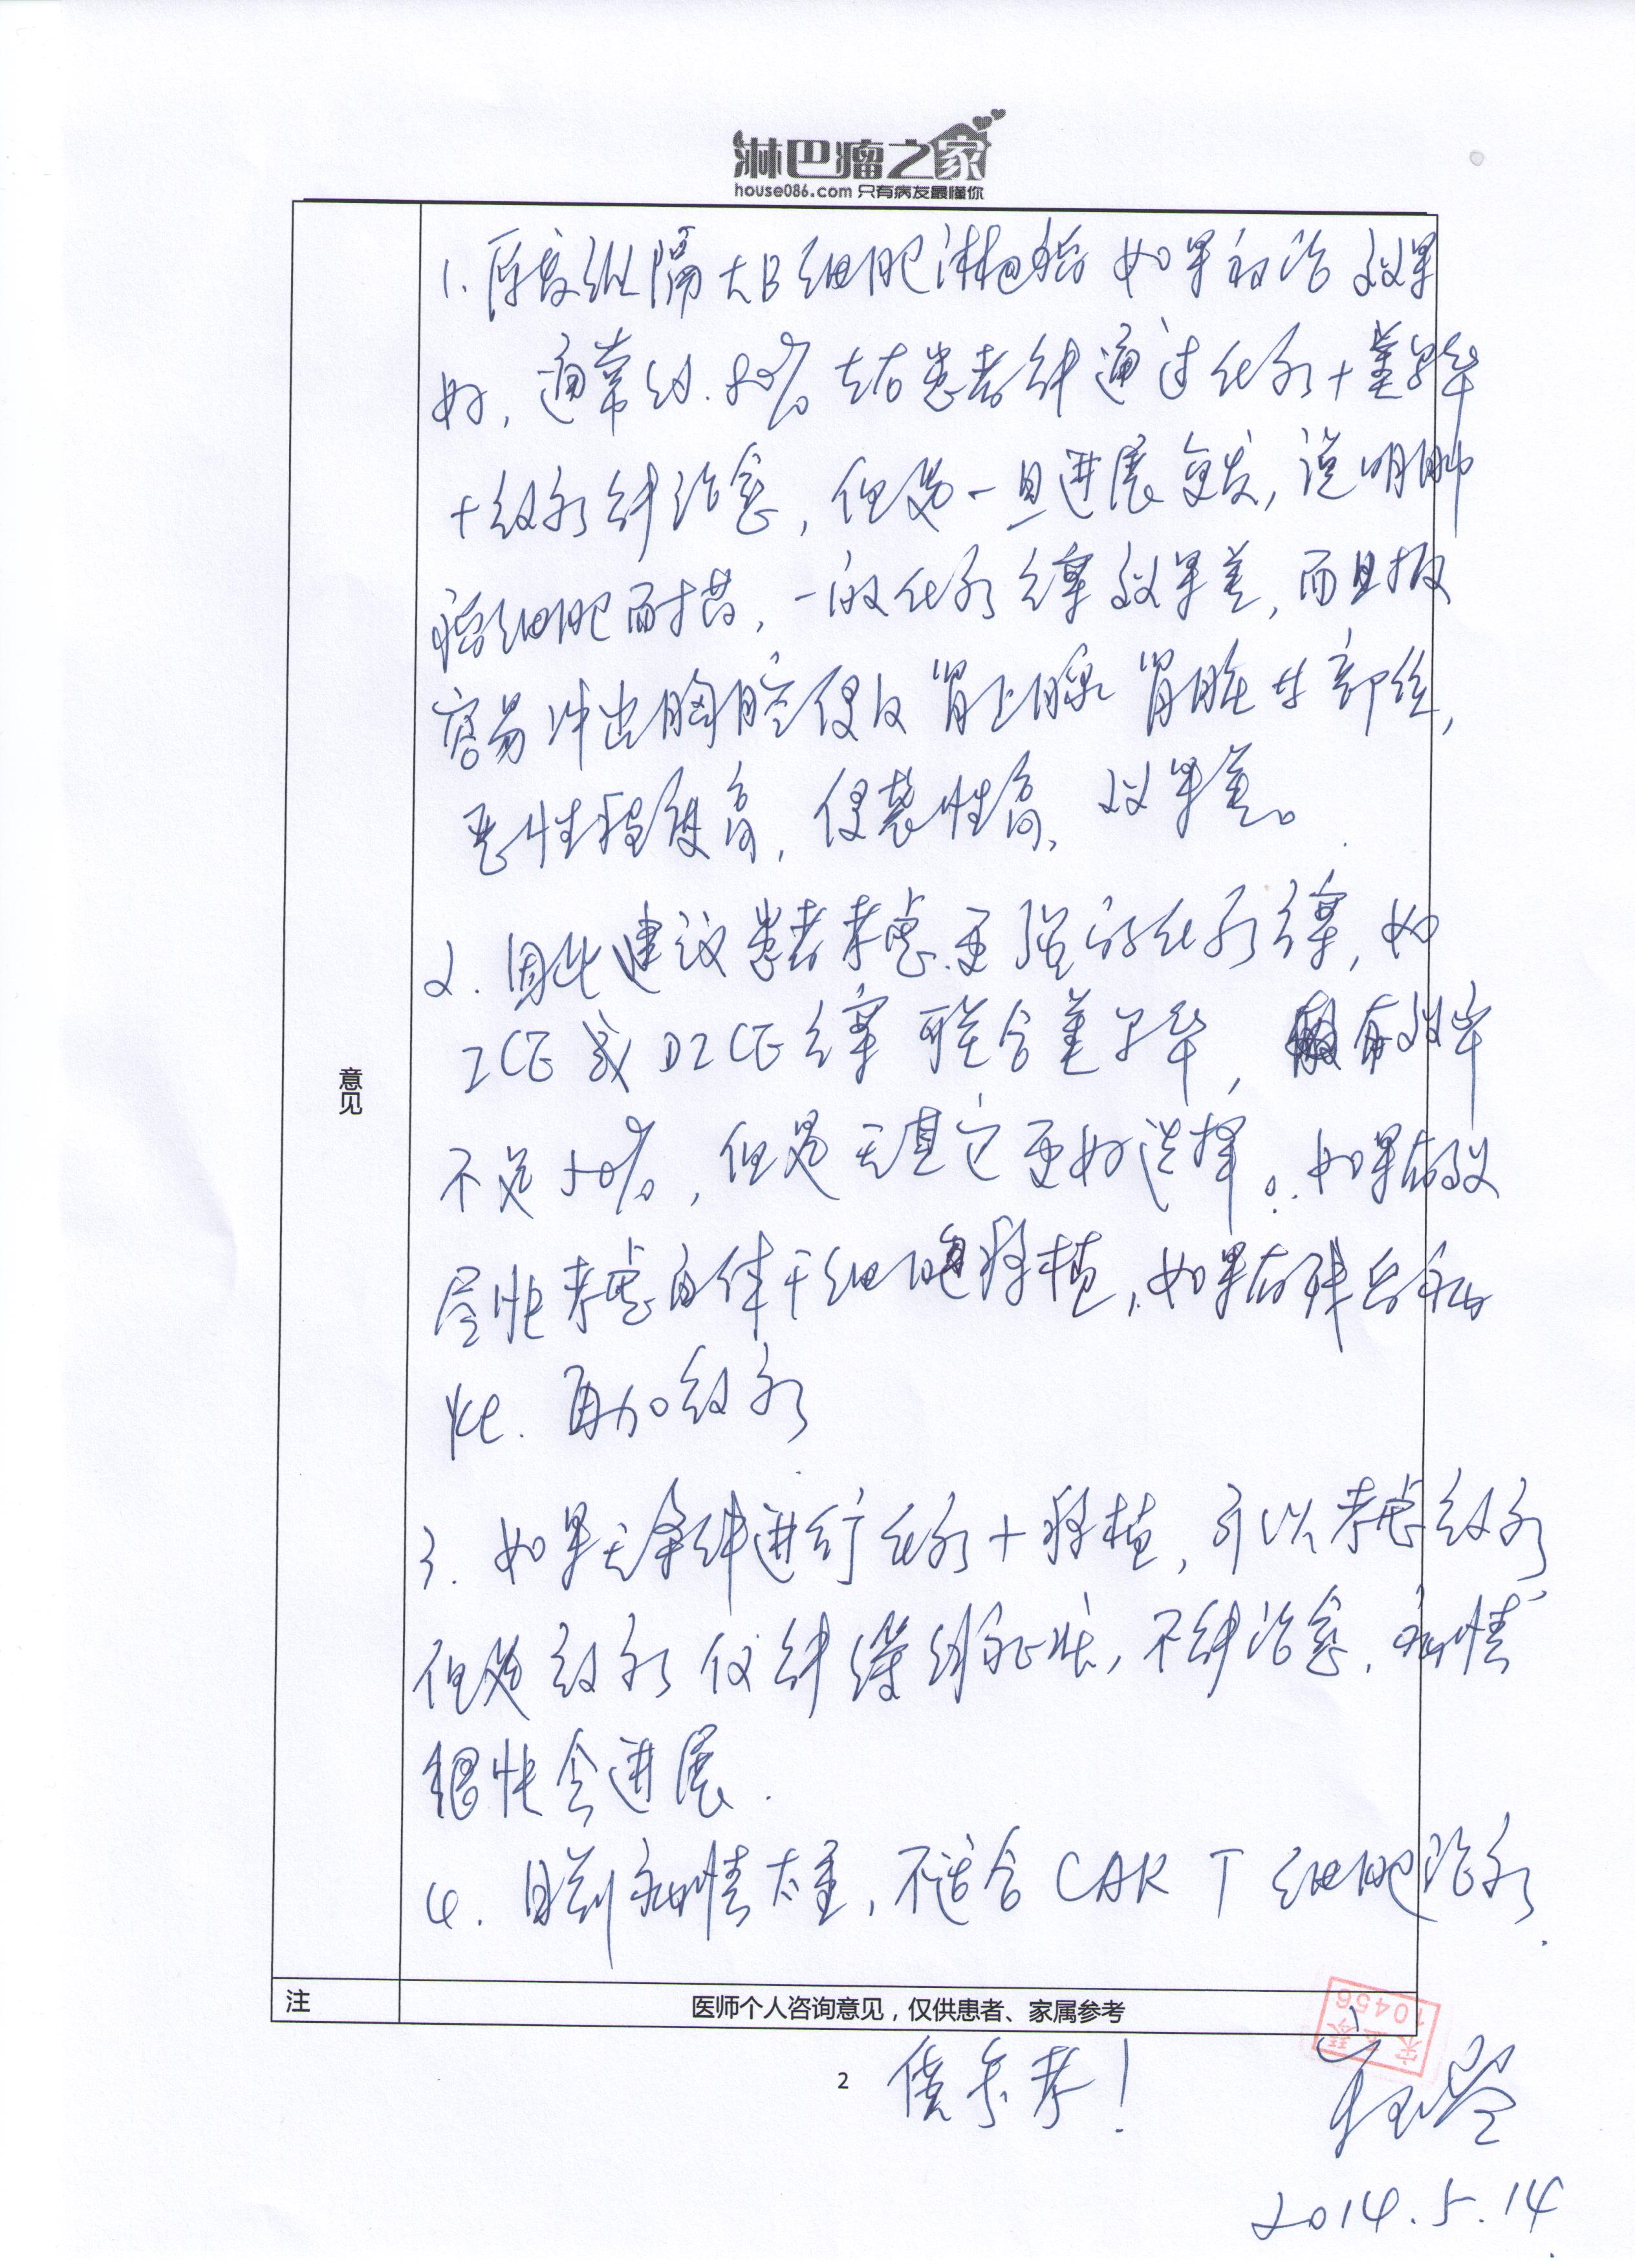 淋巴瘤之家
house086.com 只有病友最懂你
1. 原发纵隔大B细胞淋巴瘤如果初治效果
好，通常约80%左右患者能通过化疗+美罗华
+放疗能治愈，但是一旦进展复发，说明肿
瘤细胞耐药，一般化疗方案效果差，而且极
容易冲出胸腔侵及肾上腺肾脏等部位，
恶性程度高，侵袭性高，效果差。
2. 因此建议患者考虑更强的化疗方案，如
ICE或DICE方案联合美罗华，有效率
不足50%，但是无其它更好选择。如果有效
尽快考虑自体干细胞移植，如果有残台病
灶，再加放疗
3. 如果无条件进行化疗+移植，可以考虑放疗
但是放疗仅能缓解症状，不能治愈，病情
很快会进展.
4. 目前病情太重，不适合CAR T细胞治疗.
意见
注
医师个人咨询意见，仅供患者、家属参考
10456
2
供参考！
2014.5.14